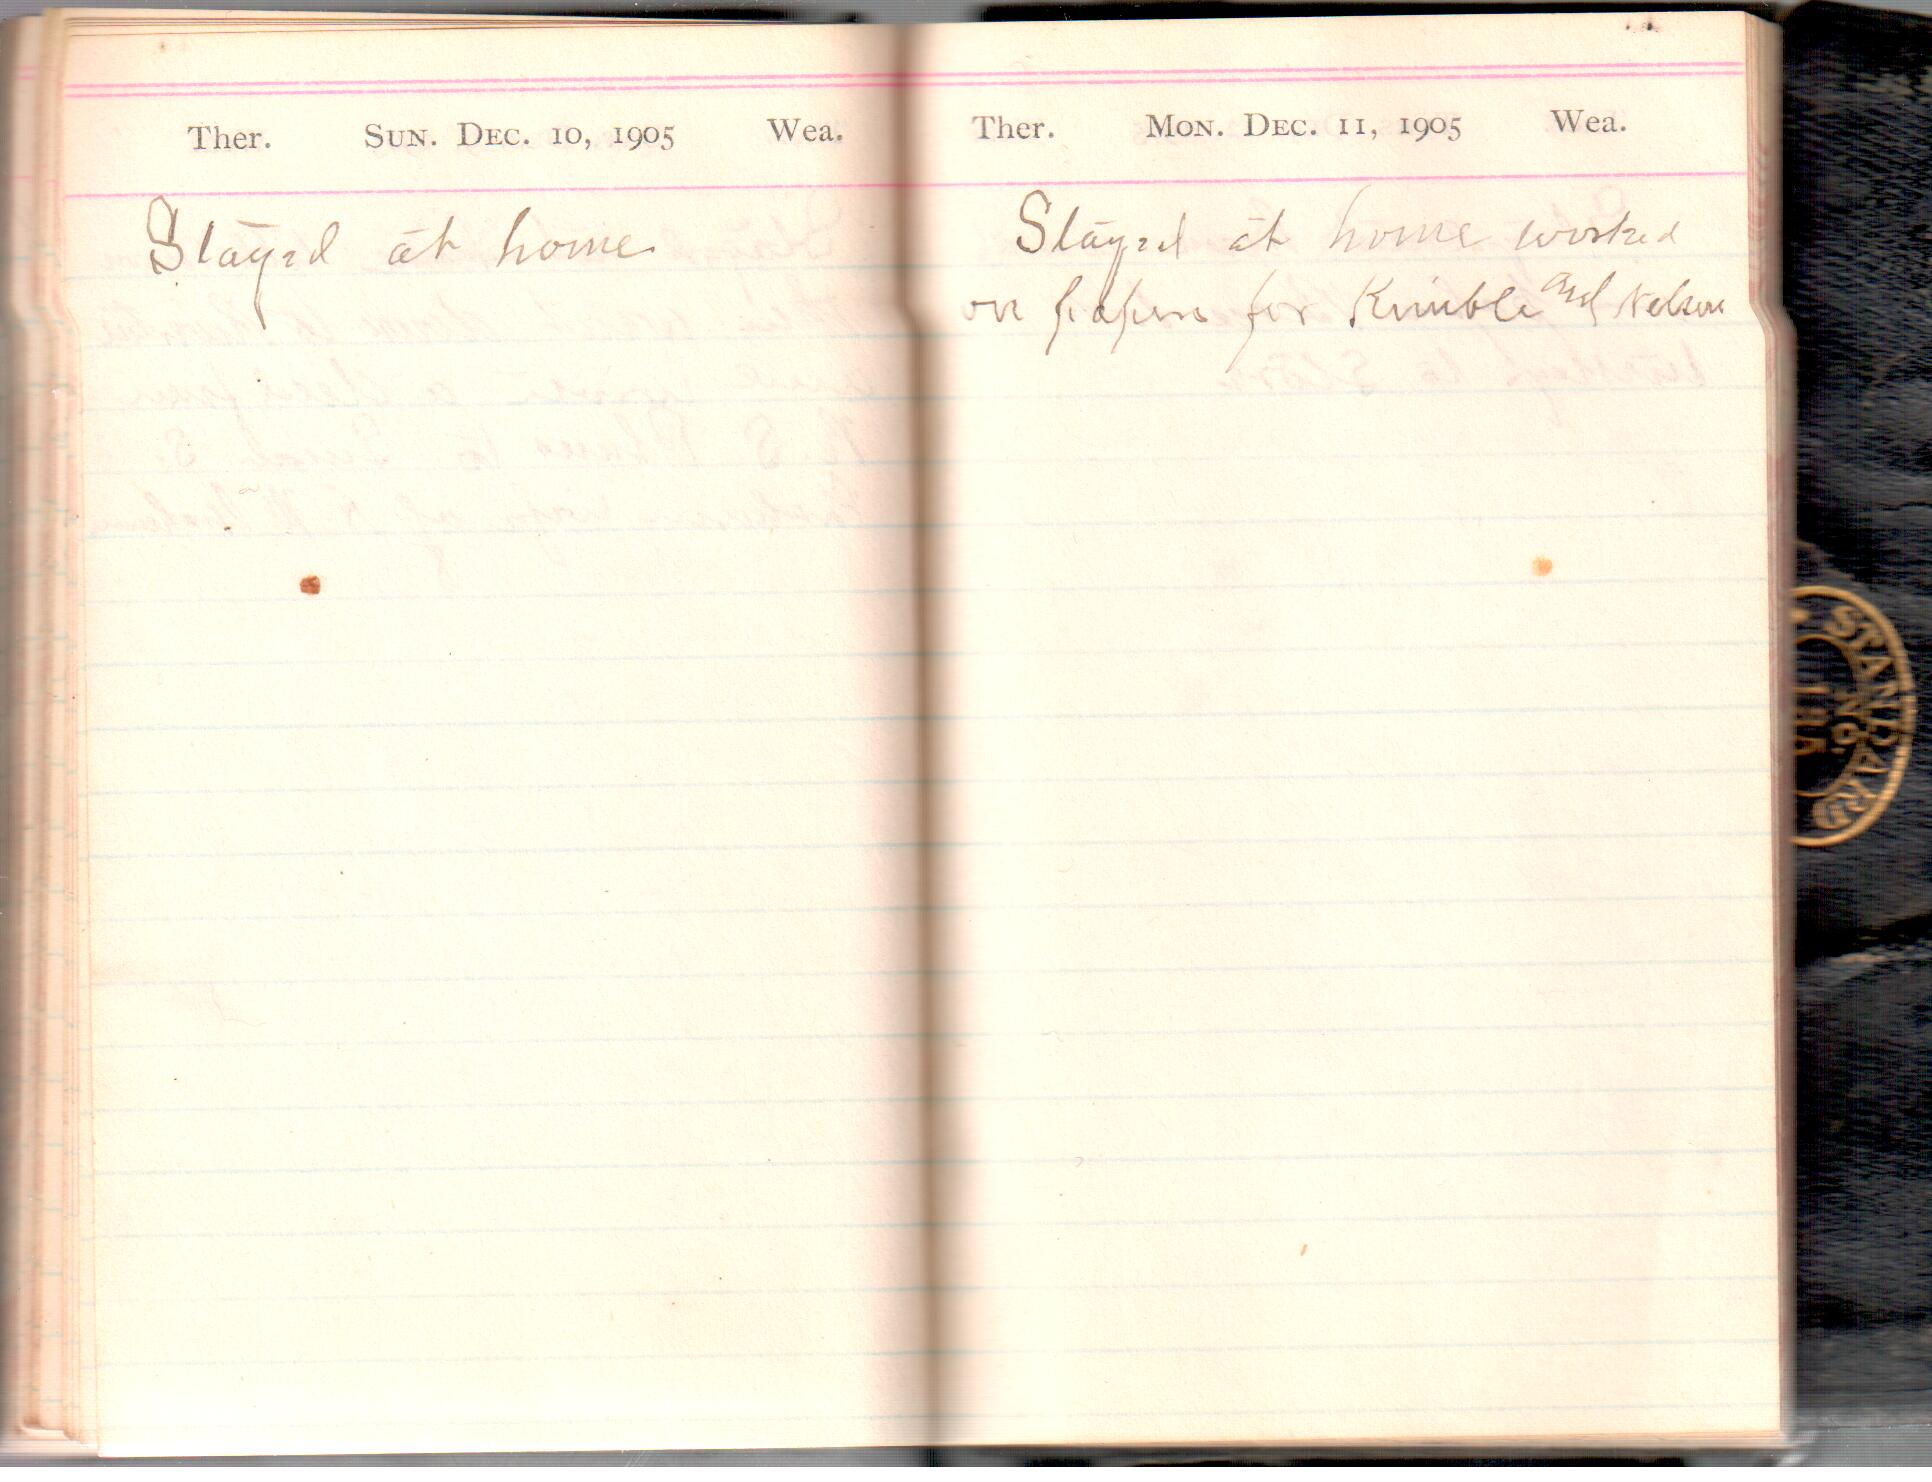 Ther. Sun. Dec. 10, 1905 Wea.
Stayed at home
Ther. Mon. Dec. 11, 1905 Wea.
Stayed at home worked
on papers for Kimble and Nelson
STANDARD
NO.